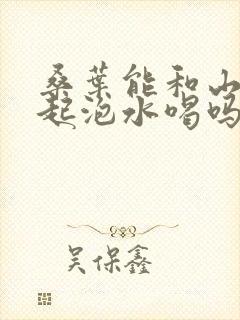 桑葉能和山
起泡水喝嗎
吴保鑫